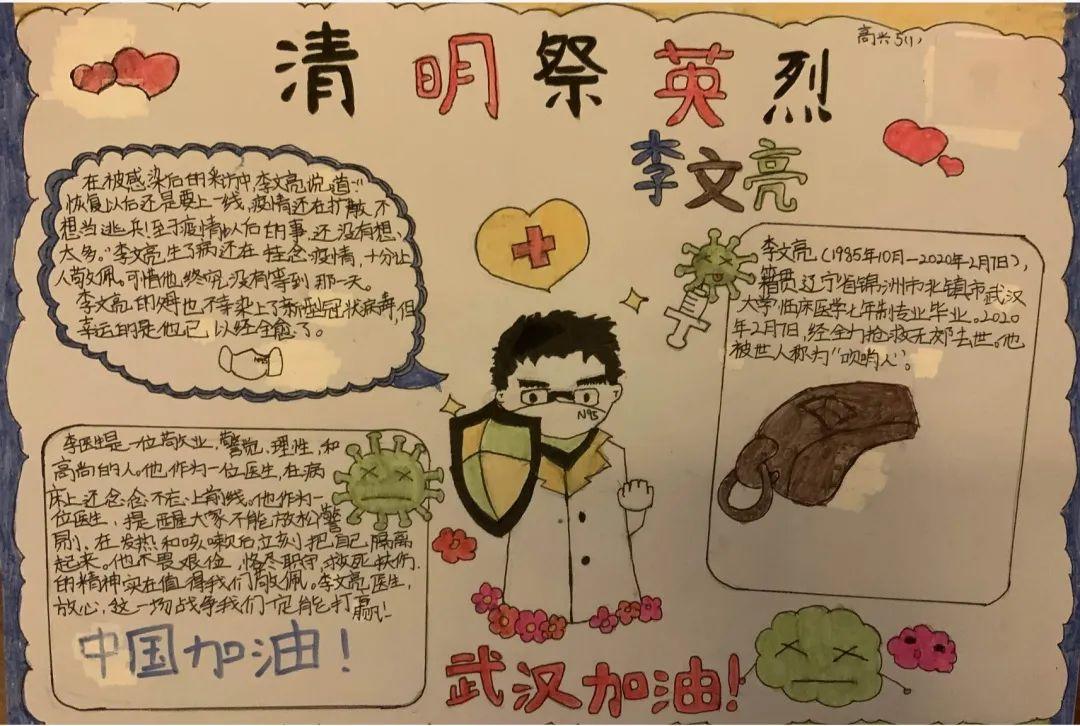 清明祭英烈
高兴5(1)
李文亮
在被感染后的采访中,李文亮说道:"
恢复以后还是要上一线,疫情还在扩散,不
想当逃兵!至于疫情以后的事,还没有想
太多。"李文亮生了病还在挂念疫情,十分让
人敬佩。可惜他终究没有等到那一天。
李文亮的父母也不幸染上了新型冠状病毒,但
幸运的是他已以经全愈了。
N95
李文亮(1985年10月—2020年2月7日),
籍贯辽宁省锦洲市北镇市武汉
大学临床医学七年制专业毕业。2020
年2月7日,经全力抢救无效去世。他
被世人称为"吹哨人"。
N95
李医生是一位敬业、警觉、理性、和
高尚的人。他作为一位医生,在病
床上还念念不忘上前线。他作为一
位医生,提醒大家不能放松警
惕,在发热和咳嗽后立刻把自己隔离
起来。他不畏艰险,恪尽职守,救死扶伤
的精神实在值得我们敬佩。李文亮医生,
放心,这一场战争我们一定能打赢!
中国加油!
武汉加油!